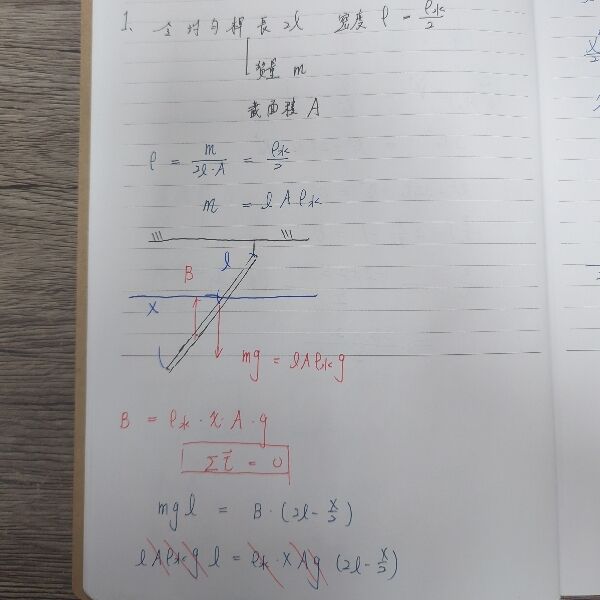 1. 全均勻桿長 2l 密度 ρ = ρ水/2
質量 m
截面積 A
ρ = m/2l·A = ρ水/2
m = lAρ水
l
B
x
mg = lAρ水g
B = ρ水·x·A·g
Στ⃗ = 0
mgl = B·(2l-x/2)
lAρ水g l = ρ水·xAg (2l-x/2)